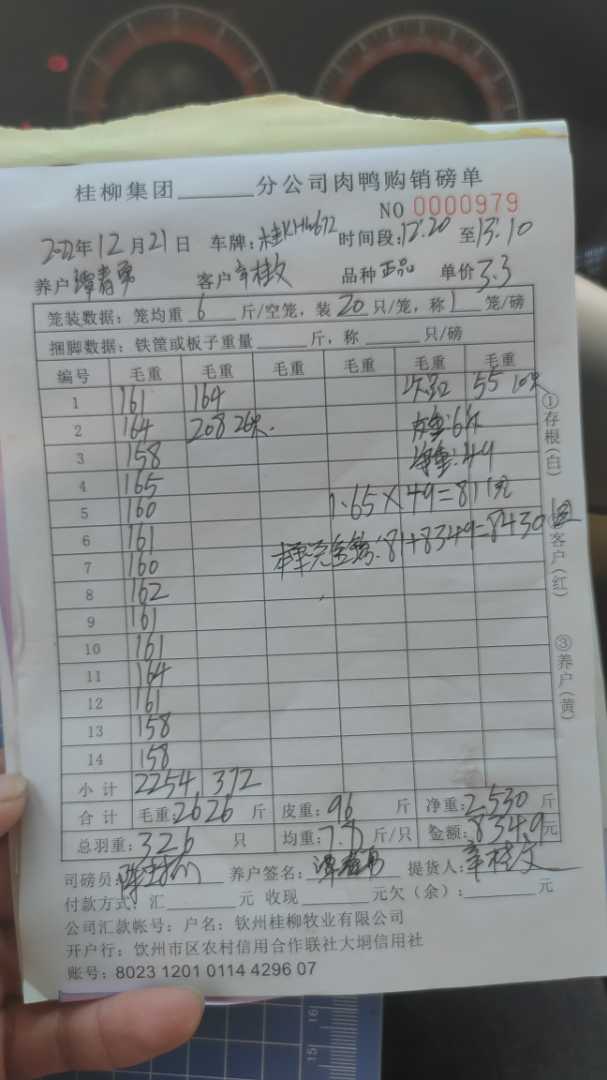 桂柳集团______分公司肉鸭购销磅单
NO 0000979
2022年12月21日 车牌:桂KHW672 时间段:12:20 至13:10
养户谭春勇 客户辛桂文 品种正品 单价3.3
笼装数据:笼均重 6 斤/空笼,装 20 只/笼,称 1 笼/磅
捆脚数据:铁筐或板子重量______斤,称______只/磅
编号 毛重 毛重 毛重 毛重 毛重 毛重
1 161 164 次品 55 10只
2 164 208 26只. 皮重:6斤
3 158 净重:49
4 165
5 160 1.65×49=81元
6 161
7 160 :81+8349=8430
8 162
9 161
10 161
11 164
12 161
13 158
14 158
小计 2254 372
合计 毛重:2626斤 皮重:96斤 净重:2530斤
总羽重:326只 均重:7.8斤/只 金额:8349元
司磅员: 养户签名:谭春勇 提货人:辛桂文
付款方式:汇______元 收现______元欠(余):______元
公司汇款帐号:户名:钦州桂柳牧业有限公司
开户行:钦州市区农村信用合作联社大垌信用社
账号:8023 1201 0114 4296 07
①存根(白)
②客户(红)
③养户(黄)
16
15